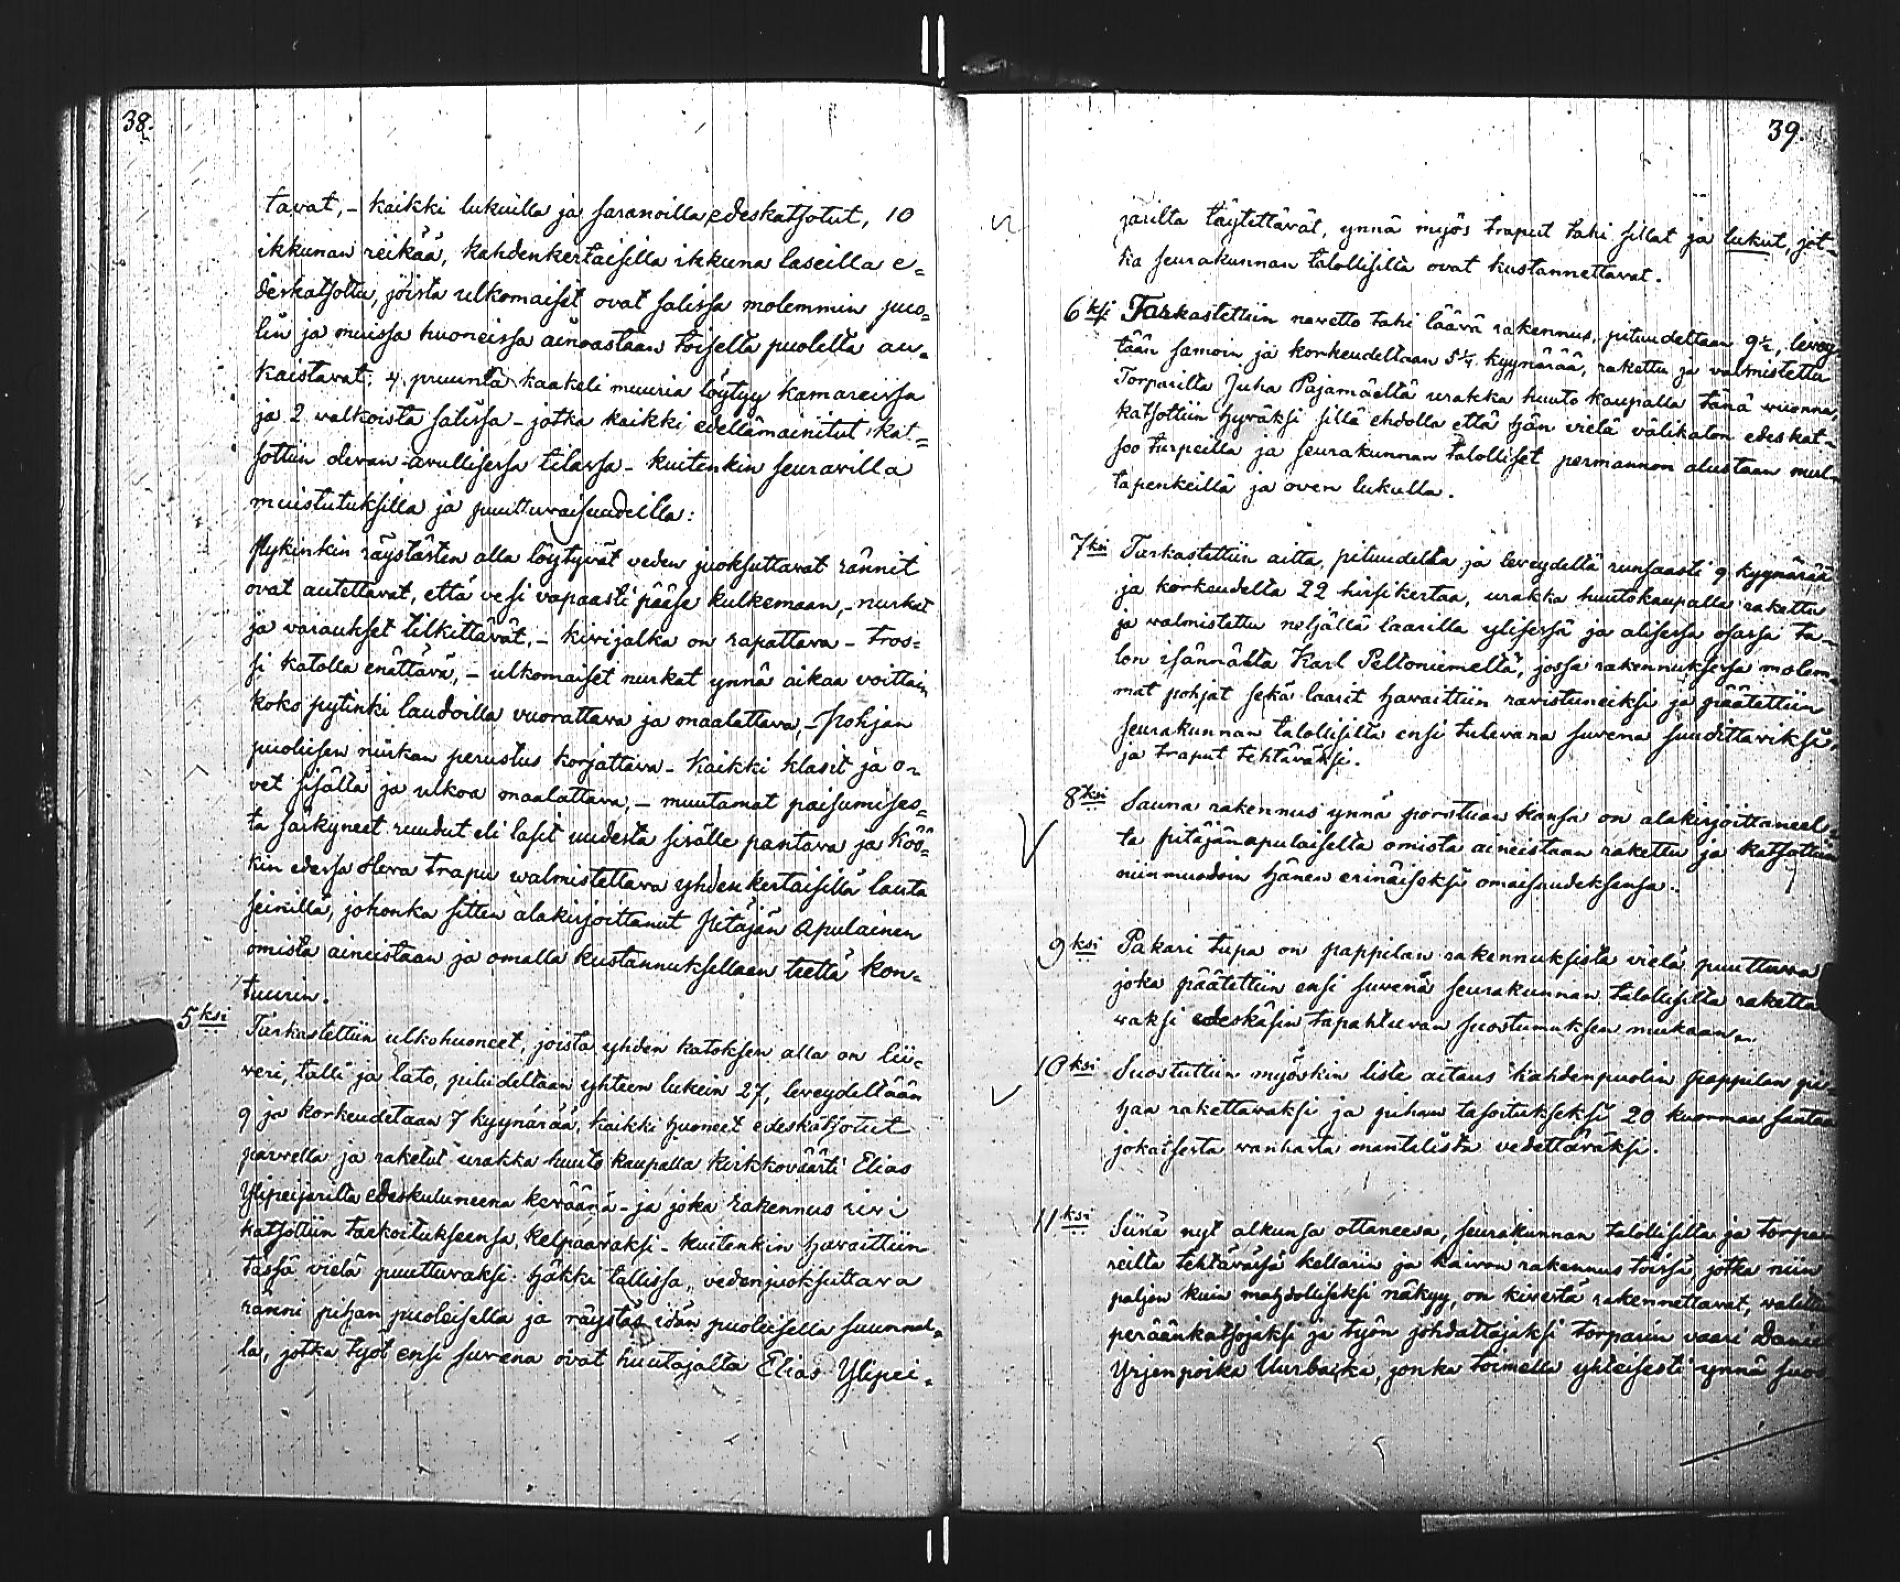 38.
tavat, - kaikki lukuilla ja saranoilla edeskatsotut, 10
ikkunan reikää, kahdenkertaisilla ikkuna laseilla e=
deskatsottu, joista ulkomaiset ovat salissa molemmin puo=
lin ja muissa huoneissa ainoastaan toiselta puolelta au=
kaistavat; 4 pruunta kaakeli muuria löytyy kamareissa
ja 2 walkoista salissa - jotka kaikki edellämainitut kat=
sottiin olevan avullisessa tilassa - kuitenkin seuravilla
muistutuksilla ja puuttuvaisuudeilla:
Nykinkin räystästen alla löytyvät veden juoksuttavat rännit
ovat autettavat, että vesi vapaasti pääse kulkemaan, - nurkat
ja varaukset tilkittävät, - kivijalka on rapattava - tros=
si katolla enättävä, - ulkomaiset nurkat ynnä aikaa voittain
koko pytinki laudoilla vuorattava ja maalattava, - Pohjan
puolisen nurkan perustus korjattava - Kaikki klasit ja o=
vet sisältä ja ulkoa maalattava, - muutamat paisumises=
ta särkyneet ruudut eli lasit uudesta sisälle pantava ja Köö=
kin edessä oleva trapu walmistettava yhdenkertaisilla lauta
seinillä, johonka sitten alakirjoittanut Pitäjän Apulainen
omista aineistaan ja omalla kustannuksellaen teettä kon=
tuurin.
5ksi Tarkastettiin ulkohuoneet, joista yhden katoksen alla on lii=
veri, talli ja lato, pituudeltaan yhteen lukein 27, leveydeltään
9 ja korkeudetaan 7 kyynärää, kaikki huoneet edeskatsotut
parvella ja raketut urakka huuto kaupalla Kirkkoväärti Elias
Ylipeijarilta edeskuluneena keväänä - ja joka rakennus rivi
katsottiin tarkoitukseensa kelpaavaksi - kuitenkin havaittiin
tässä vielä puuttuvaksi: häkki tallissa, vedenjuoksuttava
ränni pihan puoleisella ja räystäs idän puoleisella suunnal=
la, jotka työt ensi suvena ovat huutajalta Elias Ylipei=
39.
jarilta täytettävät, ynnä myös traput tahi sillat ja lukut, jot=
ka seurakunnan talollisilta ovat kustannettavat.
6ksi Tarkastettiin navetto tahi läävä rakennus, pituudeltaan 9½, levey=
tään samoin ja korkeudeltaan 5¼ kyynärää, rakettu ja valmistettu
Torparilta Juha Pajamäeltä urakka huuto kaupalla tänä vuonna,
katsottiin hyväksi sillä ehdolla että hän vielä välikaton edeskat=
soo turpeilla ja seurakunnan talolliset permannon alustaan mul=
tapenkeillä ja oven lukulla.
7ksi Tarkastettiin aitta, pituudelta ja leveydeltä runsaasti 9 kyynärää
ja korkeudelta 22 hirsikertaa, urakka huutokaupalla rakettu
ja walmistettu neljällä laarilla ylisessä ja alisessa osassa ta=
lon isännältä Karl Peltoniemeltä, jossa rakennuksessa molem=
mat pohjat sekä laarit havaittiin ravistuneiksi ja päätettiin
seurakunnan talollisilta ensi tulevana suvena suudittaviksi,
ja traput tehtäväksi.
8ksi Sauna rakennus ynnä porstuan kansa on alakirjoittaneel=
ta pitäjänapulaiselta omista aineistaan rakettu ja katsottiin
niinmuodoin hänen erinäiseksi omaisuudeksensa.
9ksi Pakari tupa on pappilan rakennuksista vielä puuttuva
joka päätettiin ensi suvena seurakunnan talollisilta raketta
vaksi edeskäsin tapahtuvan suostumuksen mukaan.
10ksi Suostuttiin myöskin liste aitaus kahdenpuolin pappilan pi=
han rakettavaksi ja pihan tasoitukseksi 20 kuormaa santaa
jokaisesta wanhasta mantalista vedettäväksi.
11ksi Siinä nyt alkunsa ottaneesa, seurakunnan talollisilta ja torpa
reilta tehtävässä kellarin ja kaivon rakennus toissä, jotka niin
paljon kuin mahdolliseksi näkyy, on kivestä rakennettavat, walittiin
peräänkatsojaksi ja työn johdattajaksi torparin vaari Daniel
Yrjenpoika Uurbacka, jonka toimella yhteisesti ynnä suos